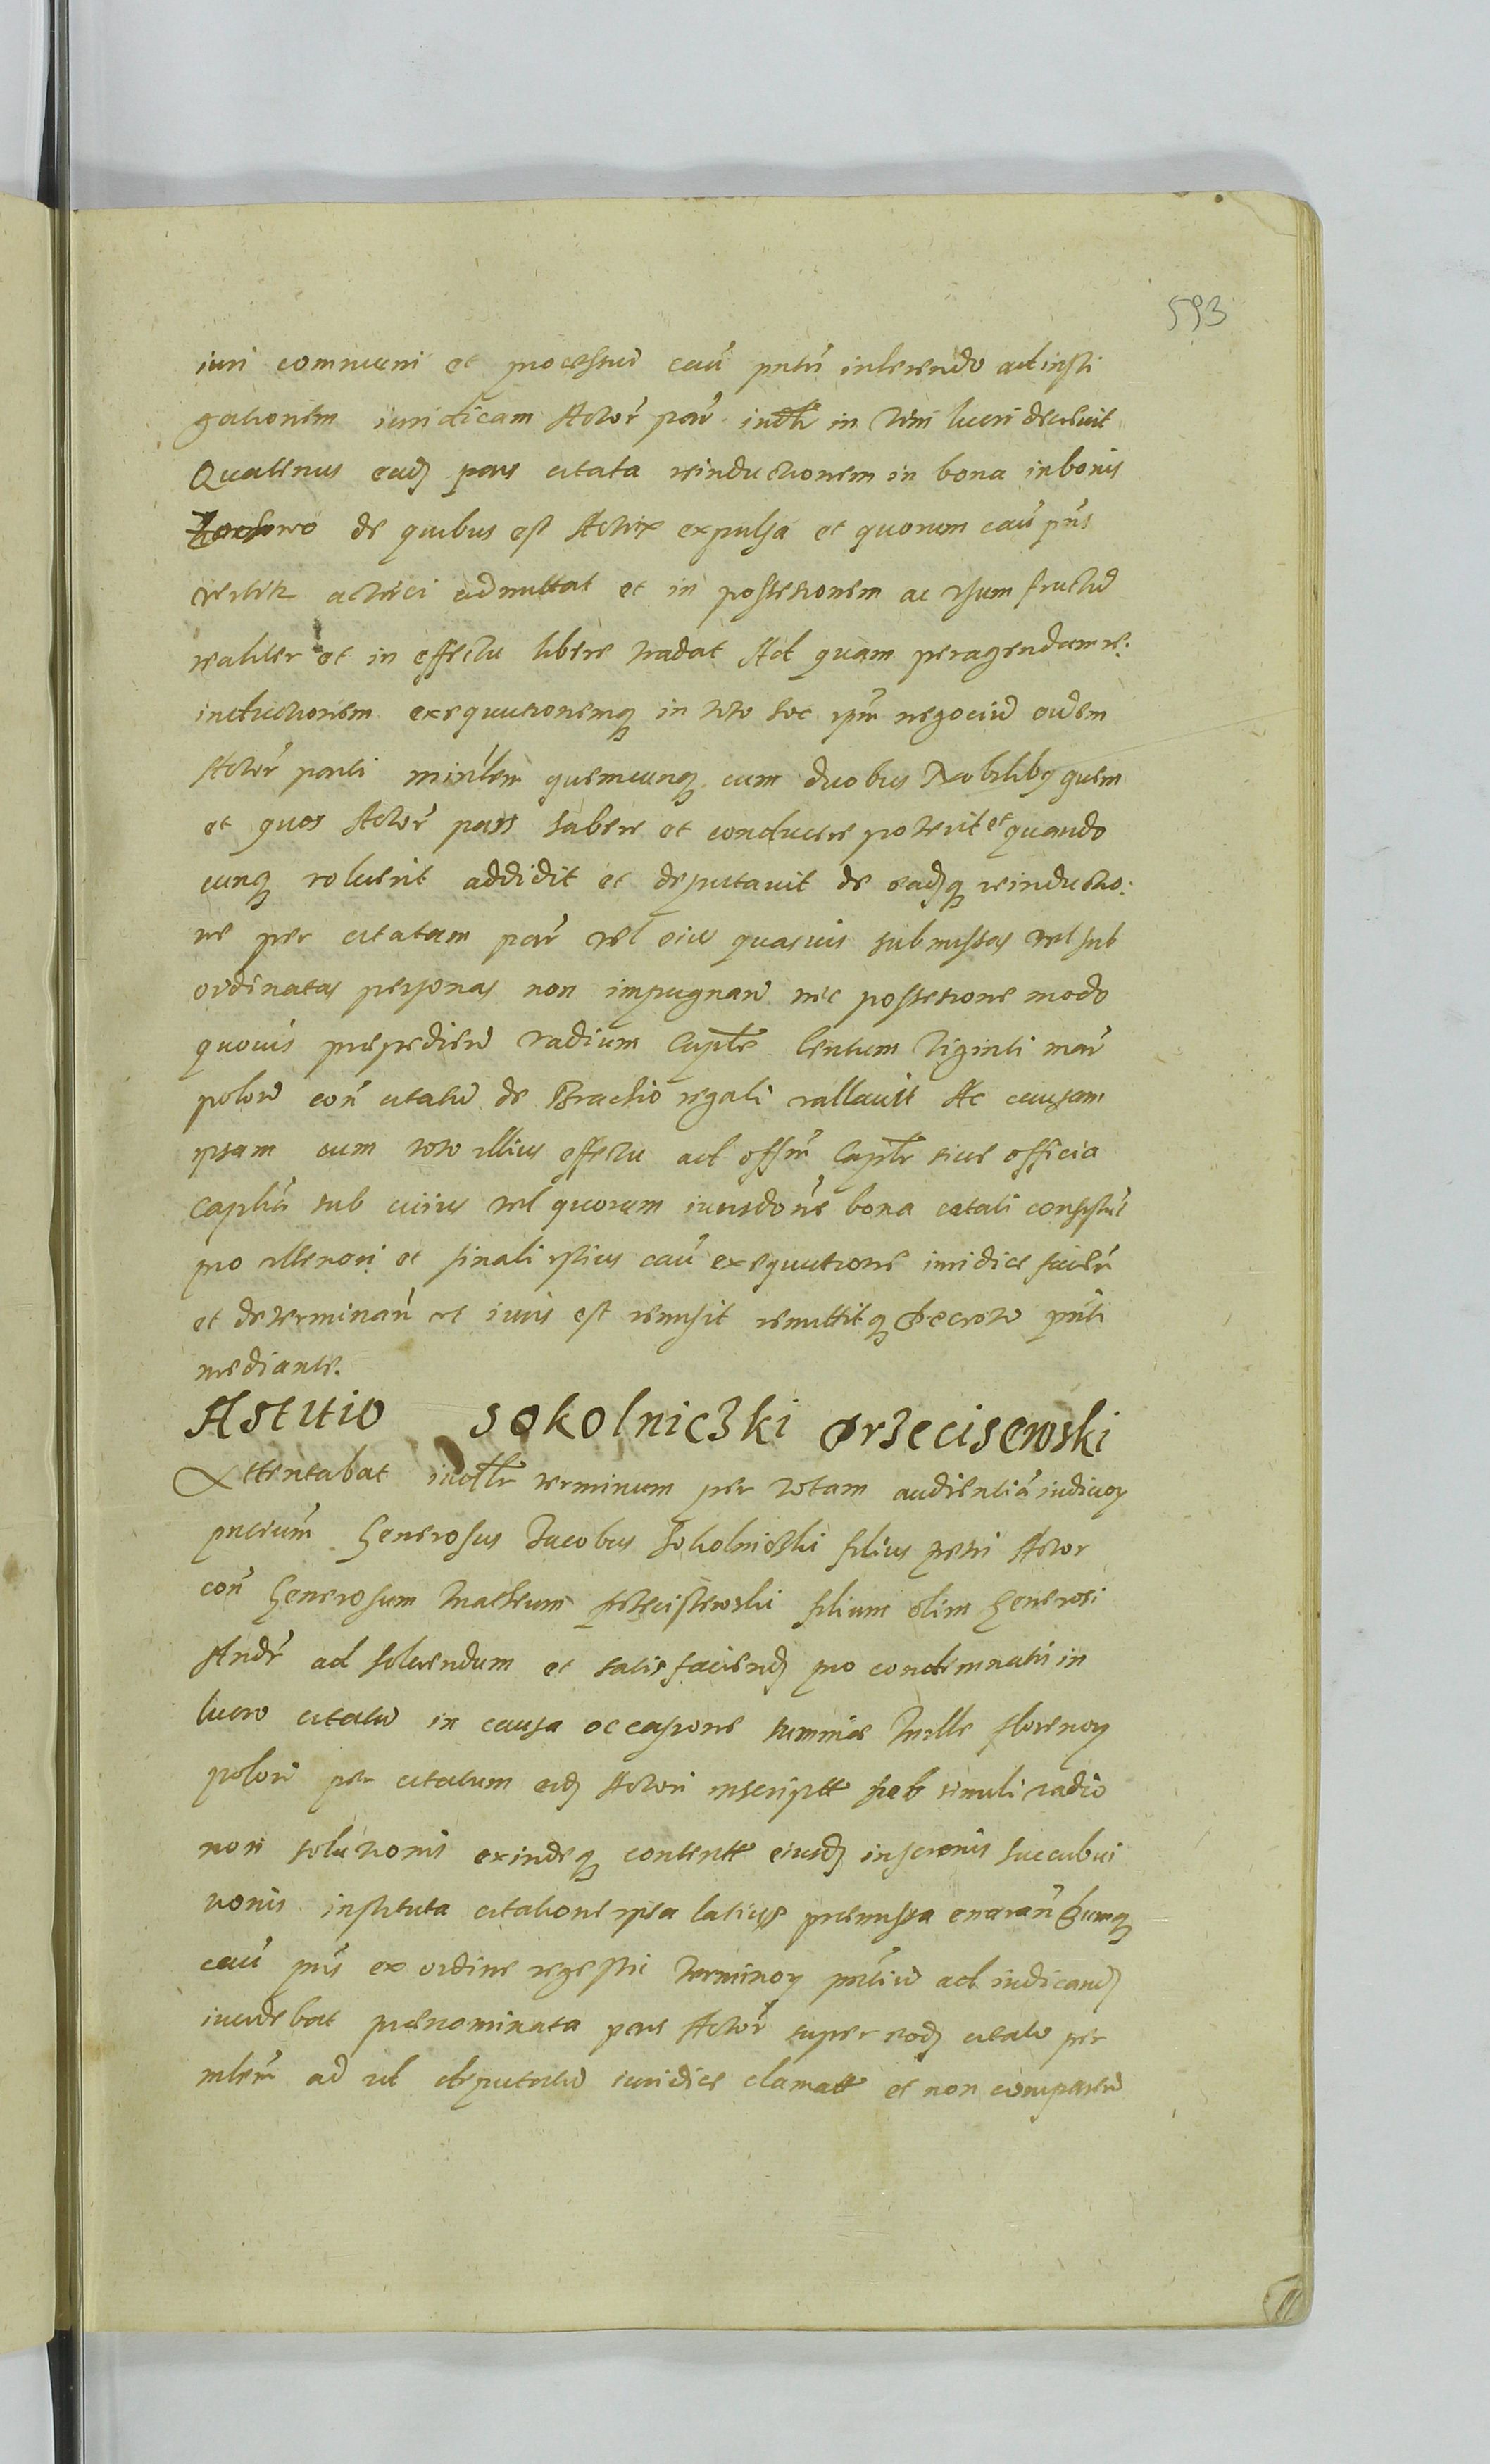 593
iuri communi et processui cau̅ pn̅tis inherendo ad insti
gationem iuridicam Actor̅ par̅ in vim lucri decrevit
Quatenus ead pars citata reinductionem in bona in bonis
de quibus est Actrix expulsa et quorum cau̅ pn̅s
vertitur actrici admittat et in possessionem ac usum fructu̅
realiter et in effectu libere tradat Ad quam peragendam re:
inductionem exequutionemq̨ in toto hoc ipm̅ negociu̅ eidem
Actor̅ parti min̅lem quemcunq̨ cum duobus Nobilibq̨ quem
et quos Actor̅ pars habere et conducere poterit et quando
cunq̨ voluerit addidit et deputauit de eadq̨ reinductio:
ne per citatam par̅ vel eius quasuis submissas vel sub
ordinatas personas non impugnan̅ nec possessione modo
quouis præpedien̅ vadium Captle Centum Viginti mar̅
polon̅ con̅ citatu̅ de Brachio regali vallauit Ac causam
ipsam cum toto illius effectu ad offm̅ Captle siue officia
Captlia̅ sub cuius vel quorum iurisdone̅ bona citati consistu̅t
pro ulteriori et finali istius cau̅ exequutione iuridice facien̅
et determinan̅ ut iuris est remisit remittitq̨ Decreto pn̅ti
mediante.
Astitio Sokolniczki Orzeciszewski
Attentabat terminum per totam audientia̅ iudicior̨
pn̅cium̅ Generosus Jacobus Sokolniczki filius petri Actor
con̅ Generosum Matheum filium olim Generosi
Andr̅ ad soluendum et satisfaciend̨ pro condemnatis in
lucro citatu̅ in causa occasione summæ Mille florenor̨
polon̅ per citatum eid̨ Actori inscriptæ sub simili vadio
non solutionis exindeq̨ contentæ eiusd̨ inscronis succubui
tionis instituta citatione ipsa latius præmissa enarran̅ Cumq̨
cau̅ pn̅s ex ordine regestri terminor̨ pn̅tiu̅ ad iudicand̨
incidebat prænominata pars Actor̅ super eod̨ citato per
mlem̅ ad id deputatu̅ iuridice clamato et non comparen̅